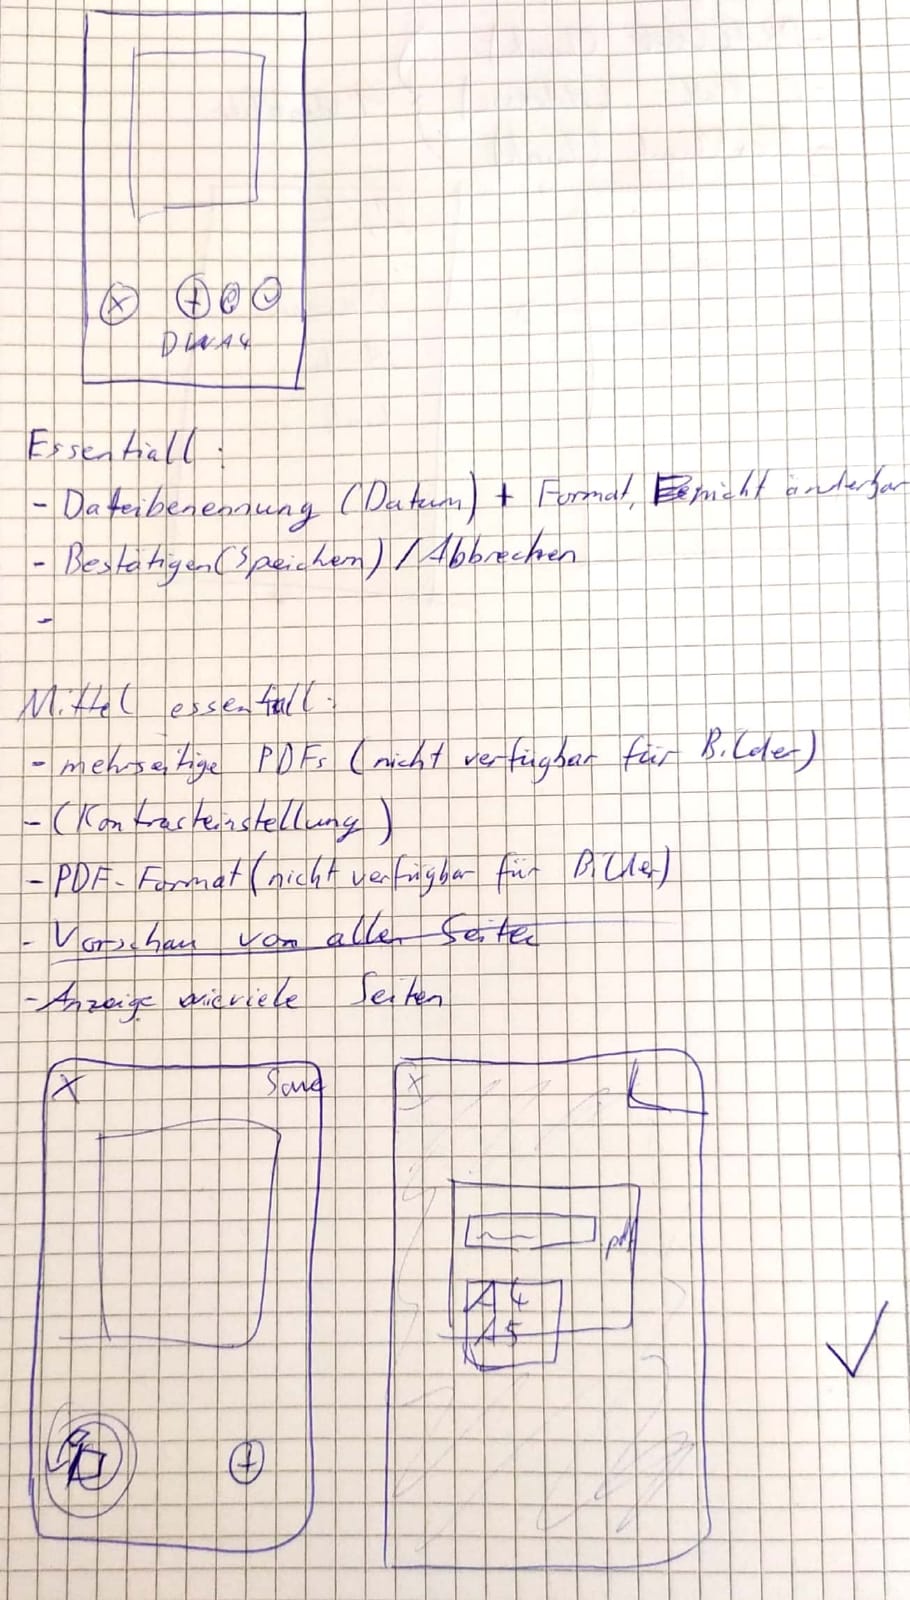 X + e
DIN A4
Essentiall:
- Dateibenennung (Datum) + Format, nicht änderbar
- Bestätigen (Speichern) / Abbrechen
-
Mittel essentiall:
- mehrseitige PDFs (nicht verfügbar für Bilder)
- (Kontrasteinstellung)
- PDF-Format (nicht verfügbar für Bilder)
- Vorschau von allen Seiten
- Anzeige wieviele Seiten
X Save
X
.pdf
A4
A5
+